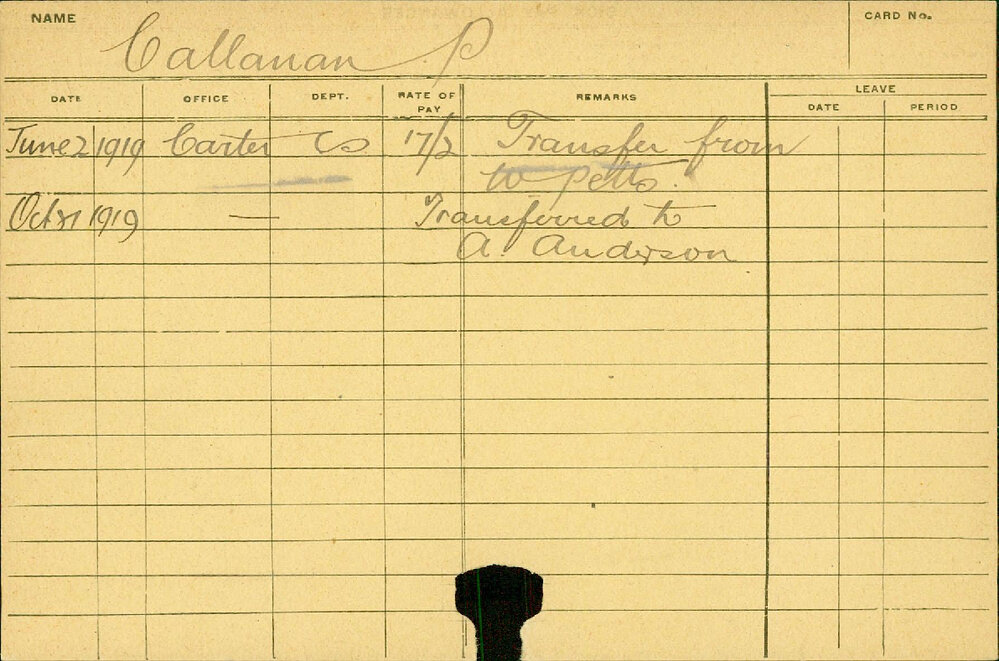 NAME Callanan P CARD No.
DATE OFFICE DEPT. RATE OF PAY REMARKS LEAVE
DATE PERIOD
June 2 1919 Carter CS 17/2 Transfer from
W Petts.
Oct 31 1919 — Transferred to
A. Anderson